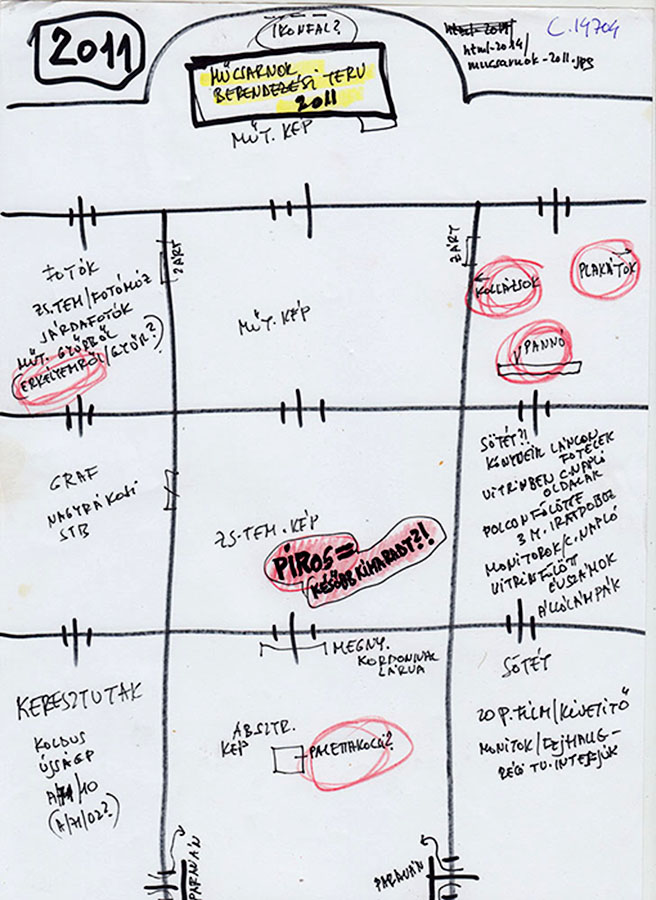 2011
IKONFAL?
html-2014/
mucsarnok-2011.jpg
C.19704
MŰCSARNOK
BERENDEZÉSI TERV
2011
MŰT. KÉP
FOTÓK
ZS.TEM/FOTÓMŰZ
JÁRDAFOTÓK
MŰT. GYŐRBŐL
(ERKÉLYEMRŐL/GYŐR?)
ZÁRT
MŰT. KÉP
ZÁRT
KOLLÁZSOK
PLAKÁTOK
PANNÓ
GRAF
NAGYRÁKOSI
STB
ZS.TEM. KÉP
PIROS=
KÉSŐBB KIMARADT?!
SÖTÉT?!
KÖNYVEIK LÁNCON
FOTELEK
VITRINBEN C.NAPLÓ
OLDALAK
POLCON FÖLÖTTE
3 M. IRATDOBOZ
MONITOROK/C.NAPLÓ
VITRIN FÖLÖTT
ÉVSZÁMOK
ÁLLÓLÁMPÁK
MEGNY.
KORDONNAL
LÁRVA
KERESZTUTAK
KOLDUS
ÚJSÁGP
A/71/10
(A/71/02?)
ABSZTR.
KÉP
PALETTAKOCSI?
SÖTÉT
20 P. FILM/KIVETITŐ
MONITOK/
RÉGI TV-INTERJÚK
PARAVÁN
PARAVÁN